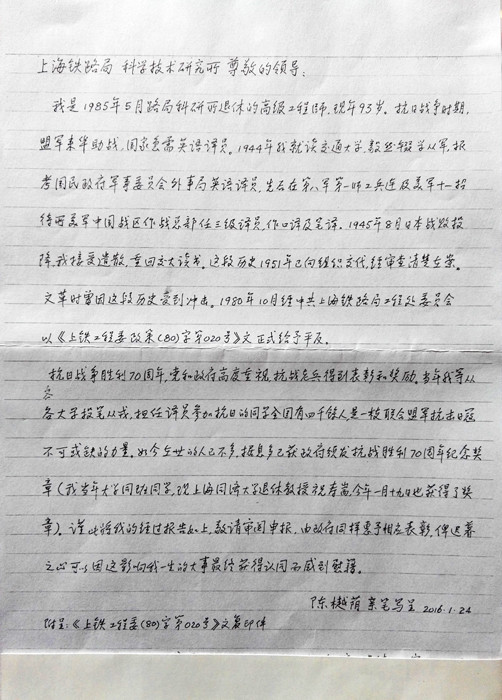 上海铁路局 科学技术研究所 尊敬的领导：
我是1985年5月路局科研所退休的高级工程师，现年93岁。抗日战争时期，
盟军来华助战，国家急需英语译员。1944年我就读交通大学，毅然辍学从军，报
考国民政府军事委员会外事局英语译员，先后在第八军第一师工兵连及美军十一招
待所美军中国战区作战总部任三级译员，作口译及笔译。1945年8月日本战败投
降，我接受遣散，重回交大读书。这段历史1951年已向组织交代，经审查清楚在案。
文革时曾因这段历史受到冲击。1980年10月经中共上海铁路局工程处委员会
以《上铁工程委政案(80)字第020号》文正式给予平反。
抗日战争胜利70周年，党和政府高度重视，抗战老兵得到表彰和奖励。当年我等从
各大学投笔从戎，担任译员参加抗日的同学全国有四千余人，是一枝联合盟军抗击日寇
不可或缺的力量。如今在世的人已不多，据息多已获政府颁发抗战胜利70周年纪念奖
章（我当年大学同班同学，现上海同济大学退休教授祝寿嵩，今年一月十九日也获得了奖
章）。谨此将我的经过报告如上，敬请审阅申报，由政府同样要予相应表彰，俾迟暮
之心可以因这影响我一生的大事最终获得认同而感到慰藉。
陈樾荫 亲笔写呈 2016.1.24
附呈：《上铁工程委(80)字第020号》文复印件